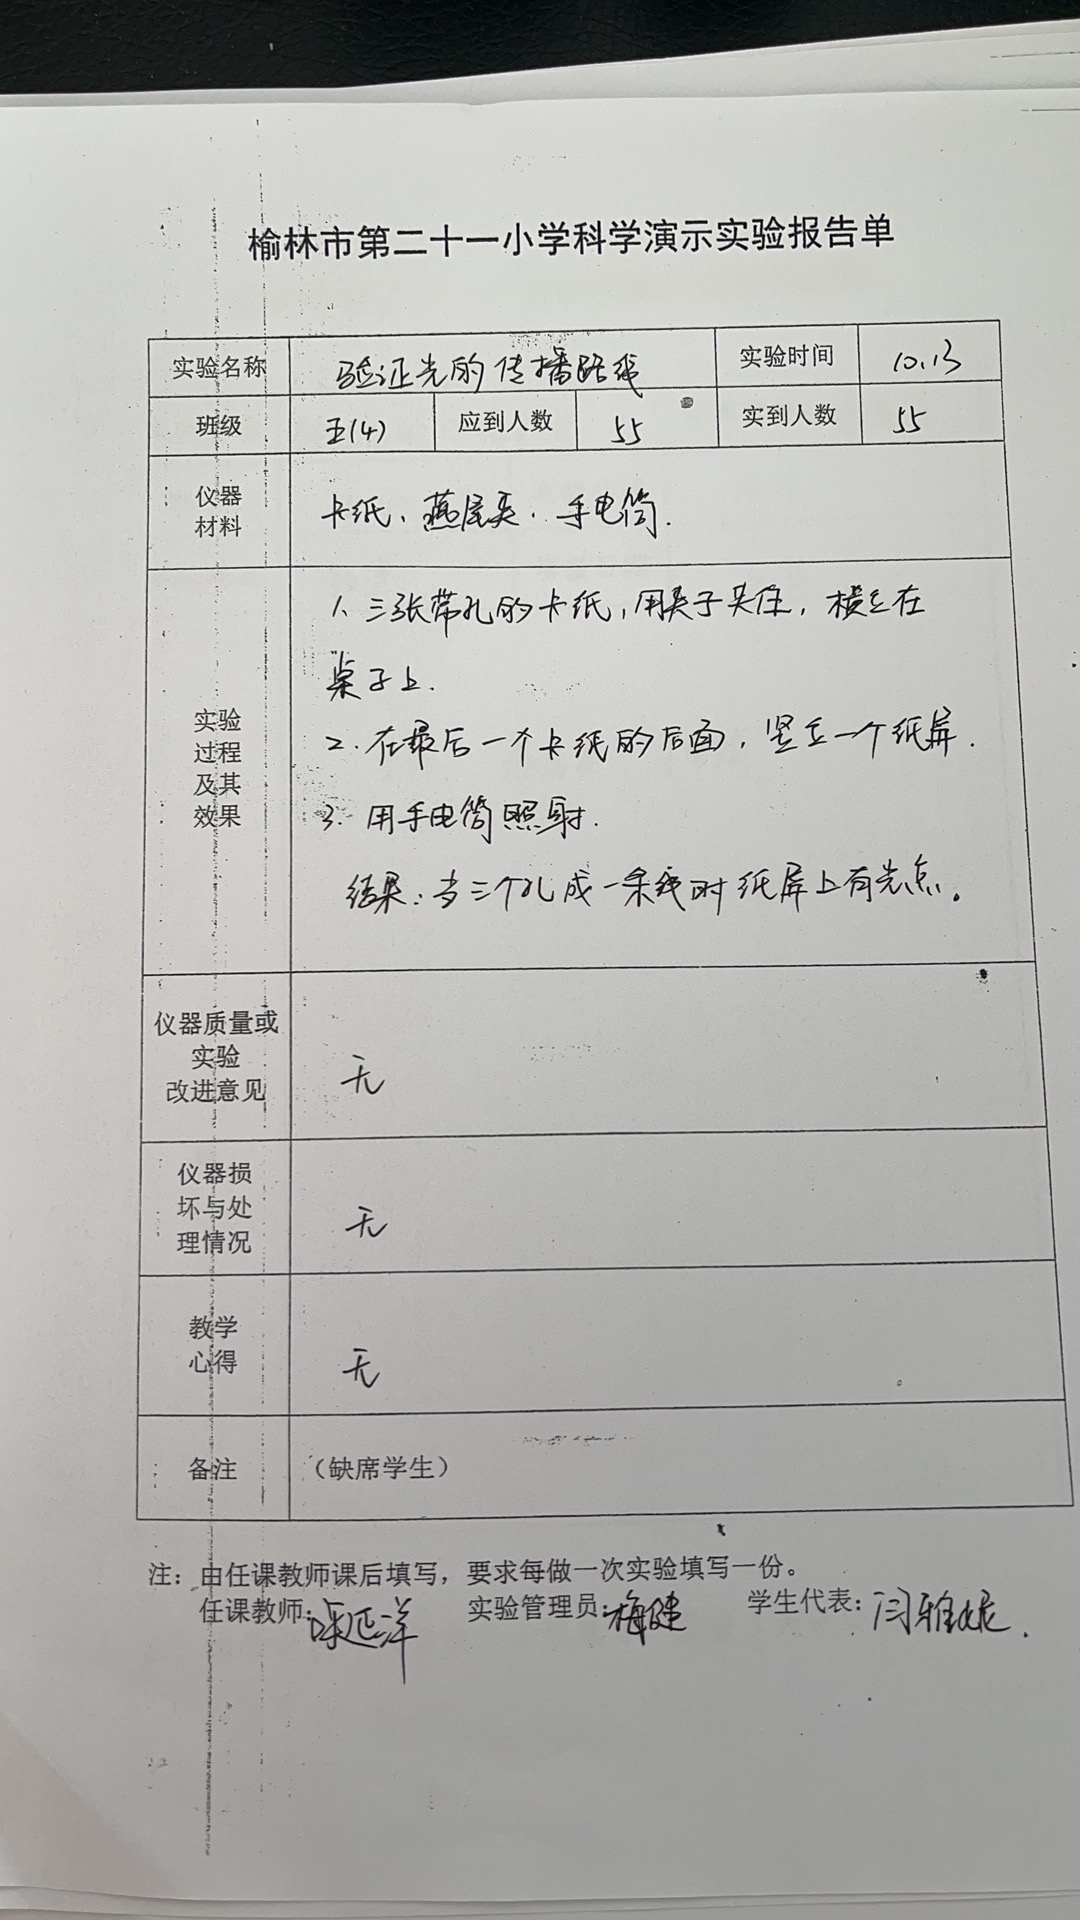 榆林市第二十一小学科学演示实验报告单
实验名称 验证光的传播路线 实验时间 10.13
班级 五(4) 应到人数 55 实到人数 55
仪器
材料
卡纸、燕尾夹、手电筒.
实验
过程
及其
效果
1. 三张带孔的卡纸,用夹子夹住,横立在
桌子上.
2. 在最后一个卡纸的后面,竖立一个纸屏.
3. 用手电筒照射.
结果:当三个孔成一条线时纸屏上有光点。
仪器质量或
实验
改进意见
无
仪器损
坏与处
理情况
无
教学
心得
无
备注 （缺席学生）
注：由任课教师课后填写，要求每做一次实验填写一份。
任课教师: 延洋 实验管理员: 梅 学生代表: 闫雅妮.